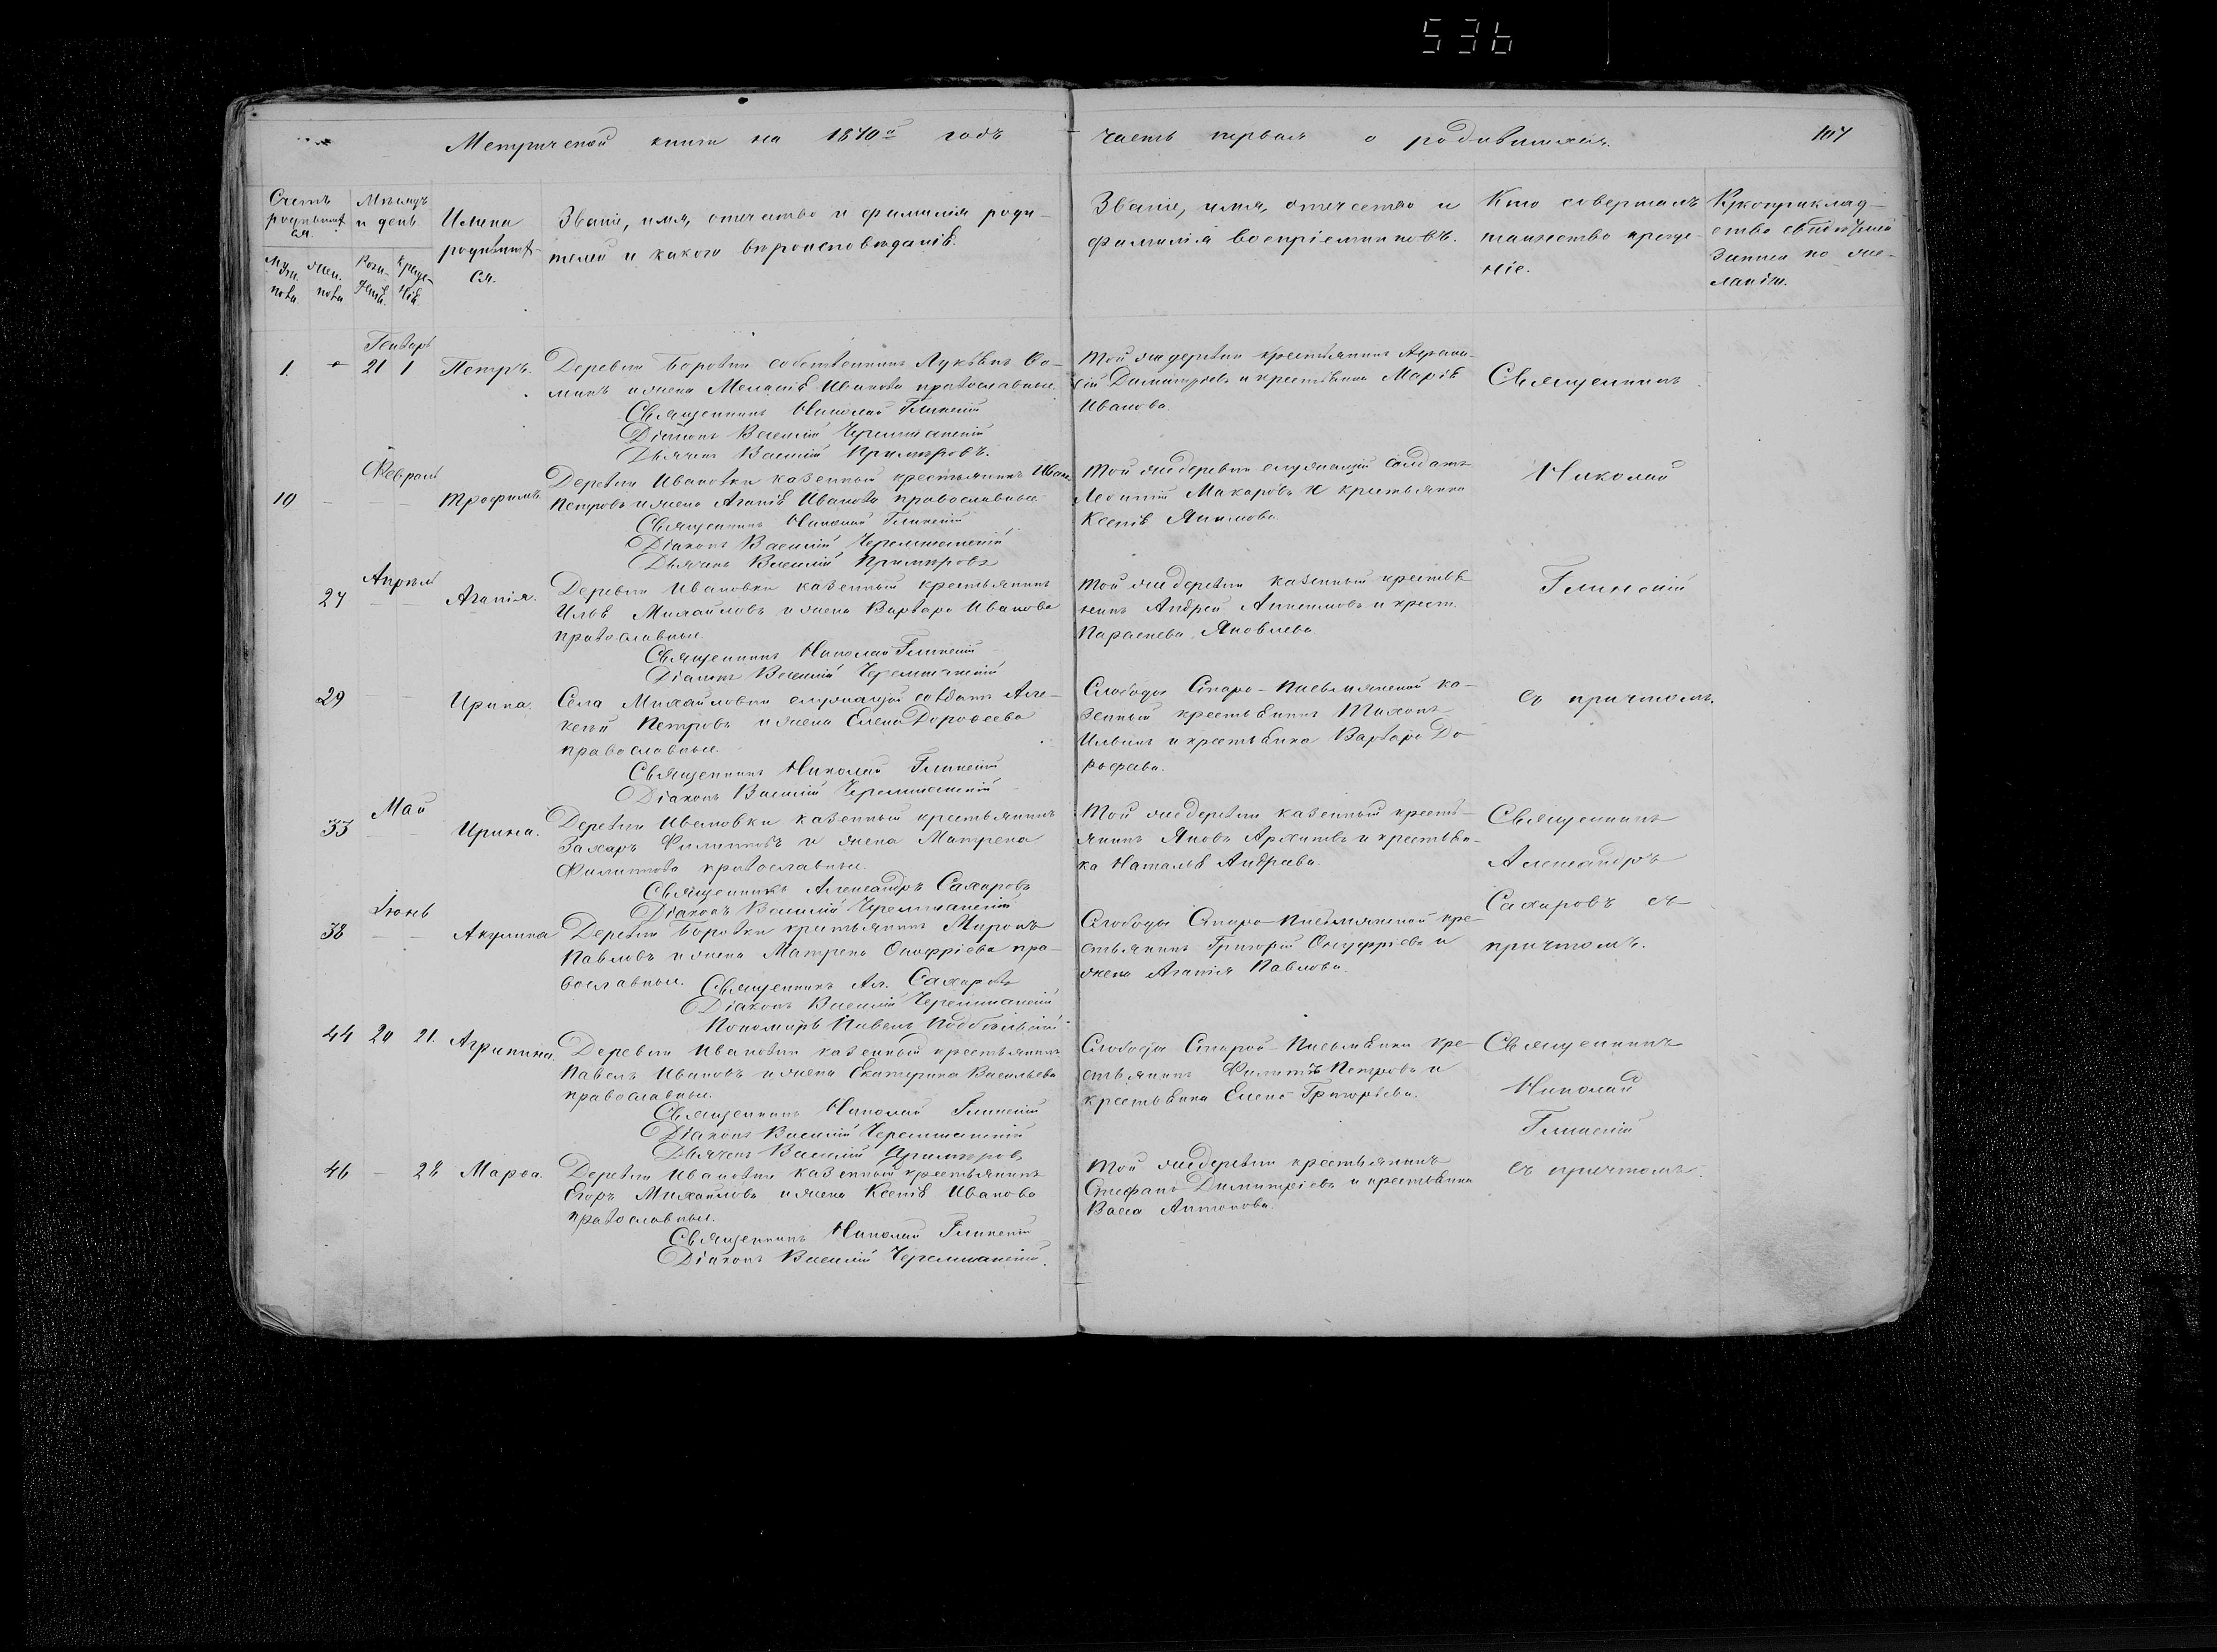 536
Метрической книги на 1870й годъ
часть первая о родившихся.
107
Счетъ родившихся.
Мѣсяцъ и день
Имена
родившихся.
Званіе, имя, отчество и фамилія роди-
телей и какого вѣроисповѣданія.
Званіе, имя, отчество и
фамилія воспріемниковъ.
Кто совершалъ
таинство креще-
ніе.
запись по же-
ланію.
Генварь
1. 21 1 Петръ.
Деревни Боровки собственникъ
и жена Меланія Иванова православные.
Священникъ Николай Глинскій
Діаконъ Василій Черемшанскій
Дьячекъ Василій Примѣровъ.
Той же деревни крестьянинъ Афана-
сій Димитріевъ и крестьянка Марія
Иванова.
Священникъ
Февраль
10 Трофимъ
Деревни Ивановки казенный крестьянинъ Иванъ
Петровъ и жена Агапія Иванова православные
Священникъ Николай Глинскій
Діаконъ Василій Черемшанскій
Дьячекъ Василій Примѣровъ
Той же деревни служащій солдатъ
Леонтій Макаровъ и крестьянка
Ксенія Якимова.
Николай
Апрѣль
27 Агапія.
Деревни Ивановки казенный крестьянинъ
Илья Михайловъ и жена Варвара Иванова
православные.
Священникъ Николай Глинскій
Діаконъ Василій Черемшанскій
Той же деревни казенный крестья-
нинъ Андрей и крест.
Параскева Яковлева
Глинскій
29 Ирина.
Села Михайловки служащій солдатъ Але-
ксѣй Петровъ и жена Елена Дороѳеева
православные.
Священникъ Николай Глинскій
Діаконъ Василій Черемшанскій
Слободы Старо-Письмянской ка-
зенный крестьянинъ Тихонъ
Ильинъ и крестьянка Варвара До-
рофева.
съ причтомъ.
Май
33 Ирина.
Деревни Ивановки казенный крестьянинъ
Захаръ Филипповъ и жена Матрена
Филиппова православные.
Священникъ Александръ Сахаровъ
Діаконъ Василій Черемшанскій
Той же деревни казенный кресть-
янинъ Яковъ Архиповъ и крестьян-
ка Наталья Андрева.
Священникъ
Александръ
Сахаровъ съ
причтомъ.
Іюнь
38 Акулина
Деревни Боровки крестьянинъ Миронъ
Павловъ и жена Матрена Онофріева пра-
вославные. Священникъ Ал. Сахаровъ
Діаконъ Василій Черемшанскій
Пономарь Павелъ
Слободы Старо-Письмянской кре-
стьянинъ Григорій Онуфріевъ и
жена Агапія Павлова.
44 20 21. Агрипина.
Деревни Ивановки казенный крестьянинъ
Павелъ Ивановъ и жена Екатерина Васильева
православные.
Священникъ Николай Глинскій
Діаконъ Василій Черемшанскій
Дьячекъ Василій Примѣровъ
Слободы Старой Письмянки кре-
стьянинъ Филипъ Петровъ и
крестьянка Елена Григорьева.
Священникъ
Николай
Глинскій
46 28 Марѳа.
Деревни Ивановки казенный крестьянинъ
Егоръ Михайловъ и жена Ксенія Иванова
православные.
Священникъ Николай Глинскій
Діаконъ Василій Черемшанскій.
Той же деревни крестьянинъ
Стефанъ Димитріевъ и крестьянка
Васса Антонова.
съ причтомъ.